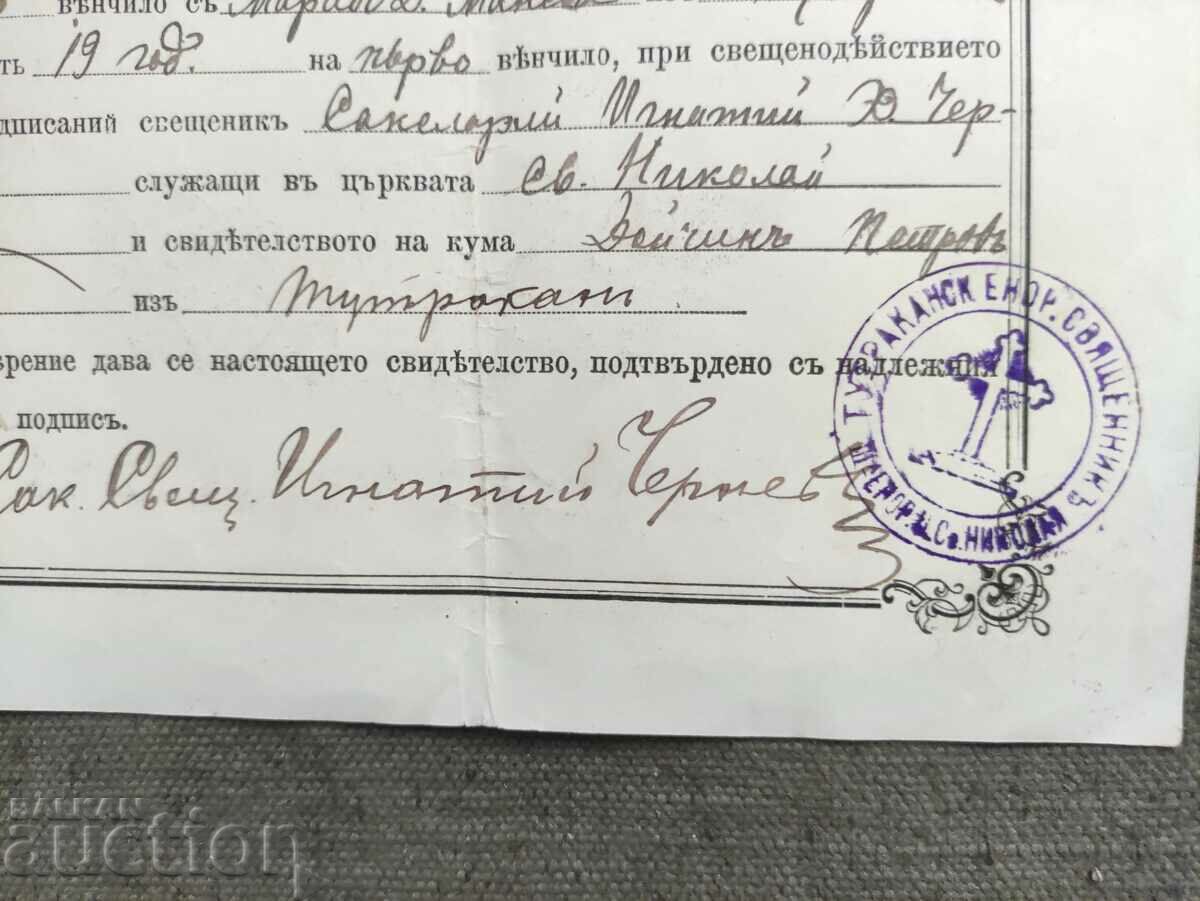 вѣнчило съ
ть 19 год. на първо вѣнчило, при свещенодѣйствието
дписаний свещеникъ Сакеларий Игнатий Д. Чер-
служащи въ църквата Св. Николай
и свидѣтелството на кума Дойчинъ Петровъ
изъ Тутраканъ
ѣрение дава се настоящето свидѣтелство, подтвърдено съ надлежния
подпись.
Сак. Свещ. Игнатий Чернев
ТУТРАКАНСК ЕНОР. СВЯЩЕННИКЪ
Св. НИКОЛАЯ
БАЛКАН
auction